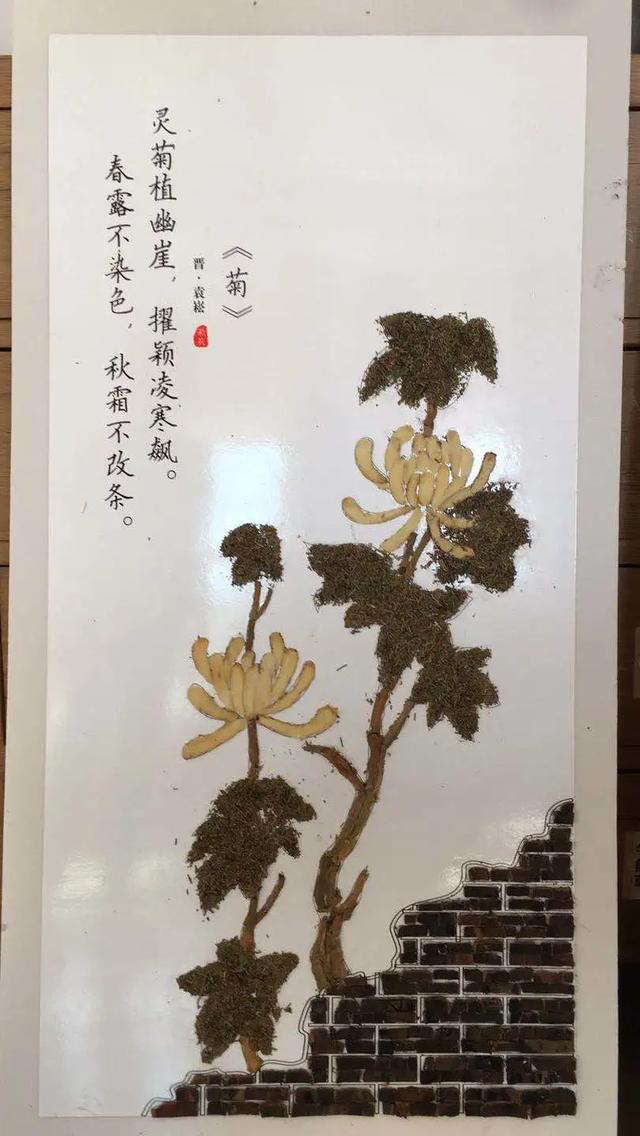 《菊》
晋·袁崧
灵菊植幽崖，擢颖凌寒飙。
春露不染色，秋霜不改条。